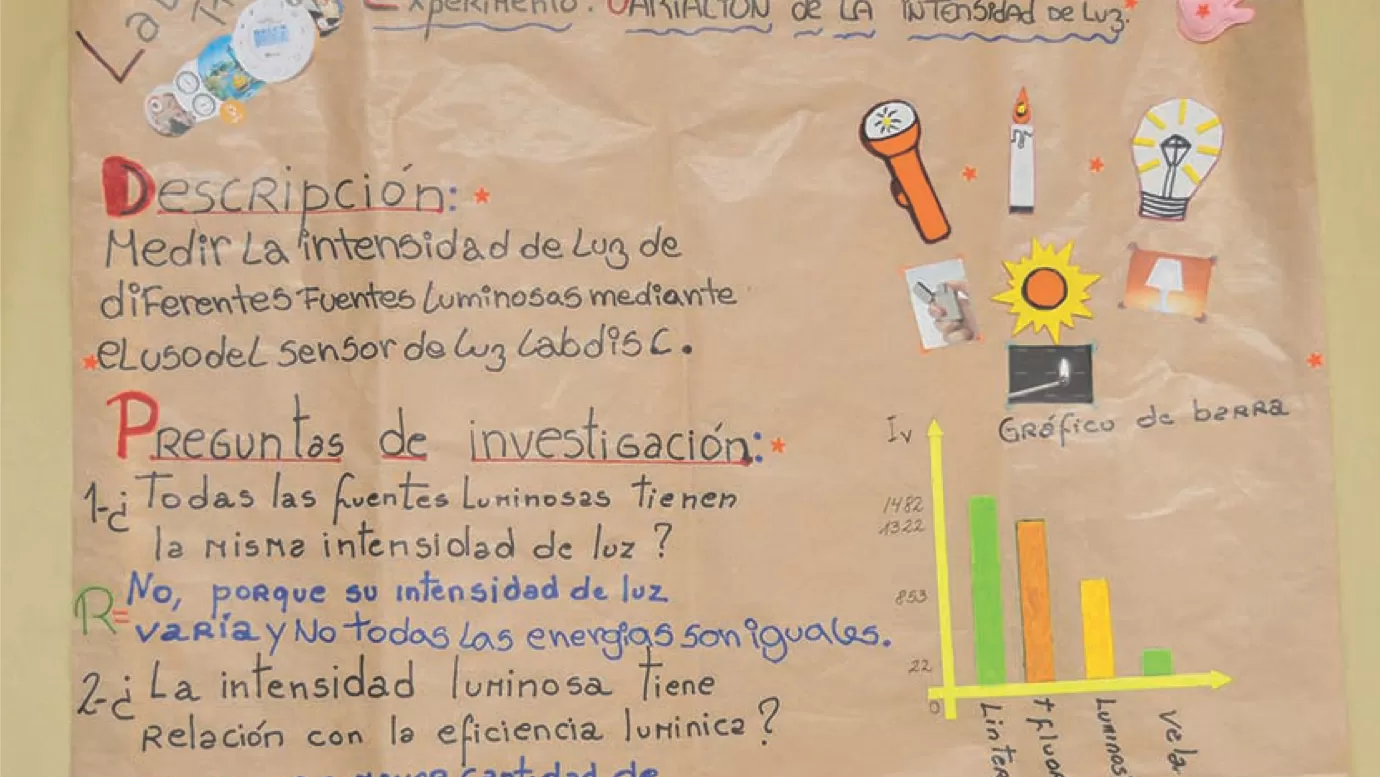 Experimento: VARIACIÓN de LA INTENSIDAD DE Luz.
Descripción:
Medir La intensidad de Luz de
diferentes Fuentes Luminosas mediante
el uso del sensor de luz Labdisc.
Preguntas de investigación:
1-¿ Todas las fuentes Luminosas tienen
la misma intensidad de luz?
R= No, porque su intensidad de luz
varía y No todas las energías son iguales.
2-¿ La intensidad luminosa tiene
Relación con la eficiencia luminica?
cantidad de
Gráfico de barra
Iv
1482
1322
853
22
0
Linter
Luminos
Vela